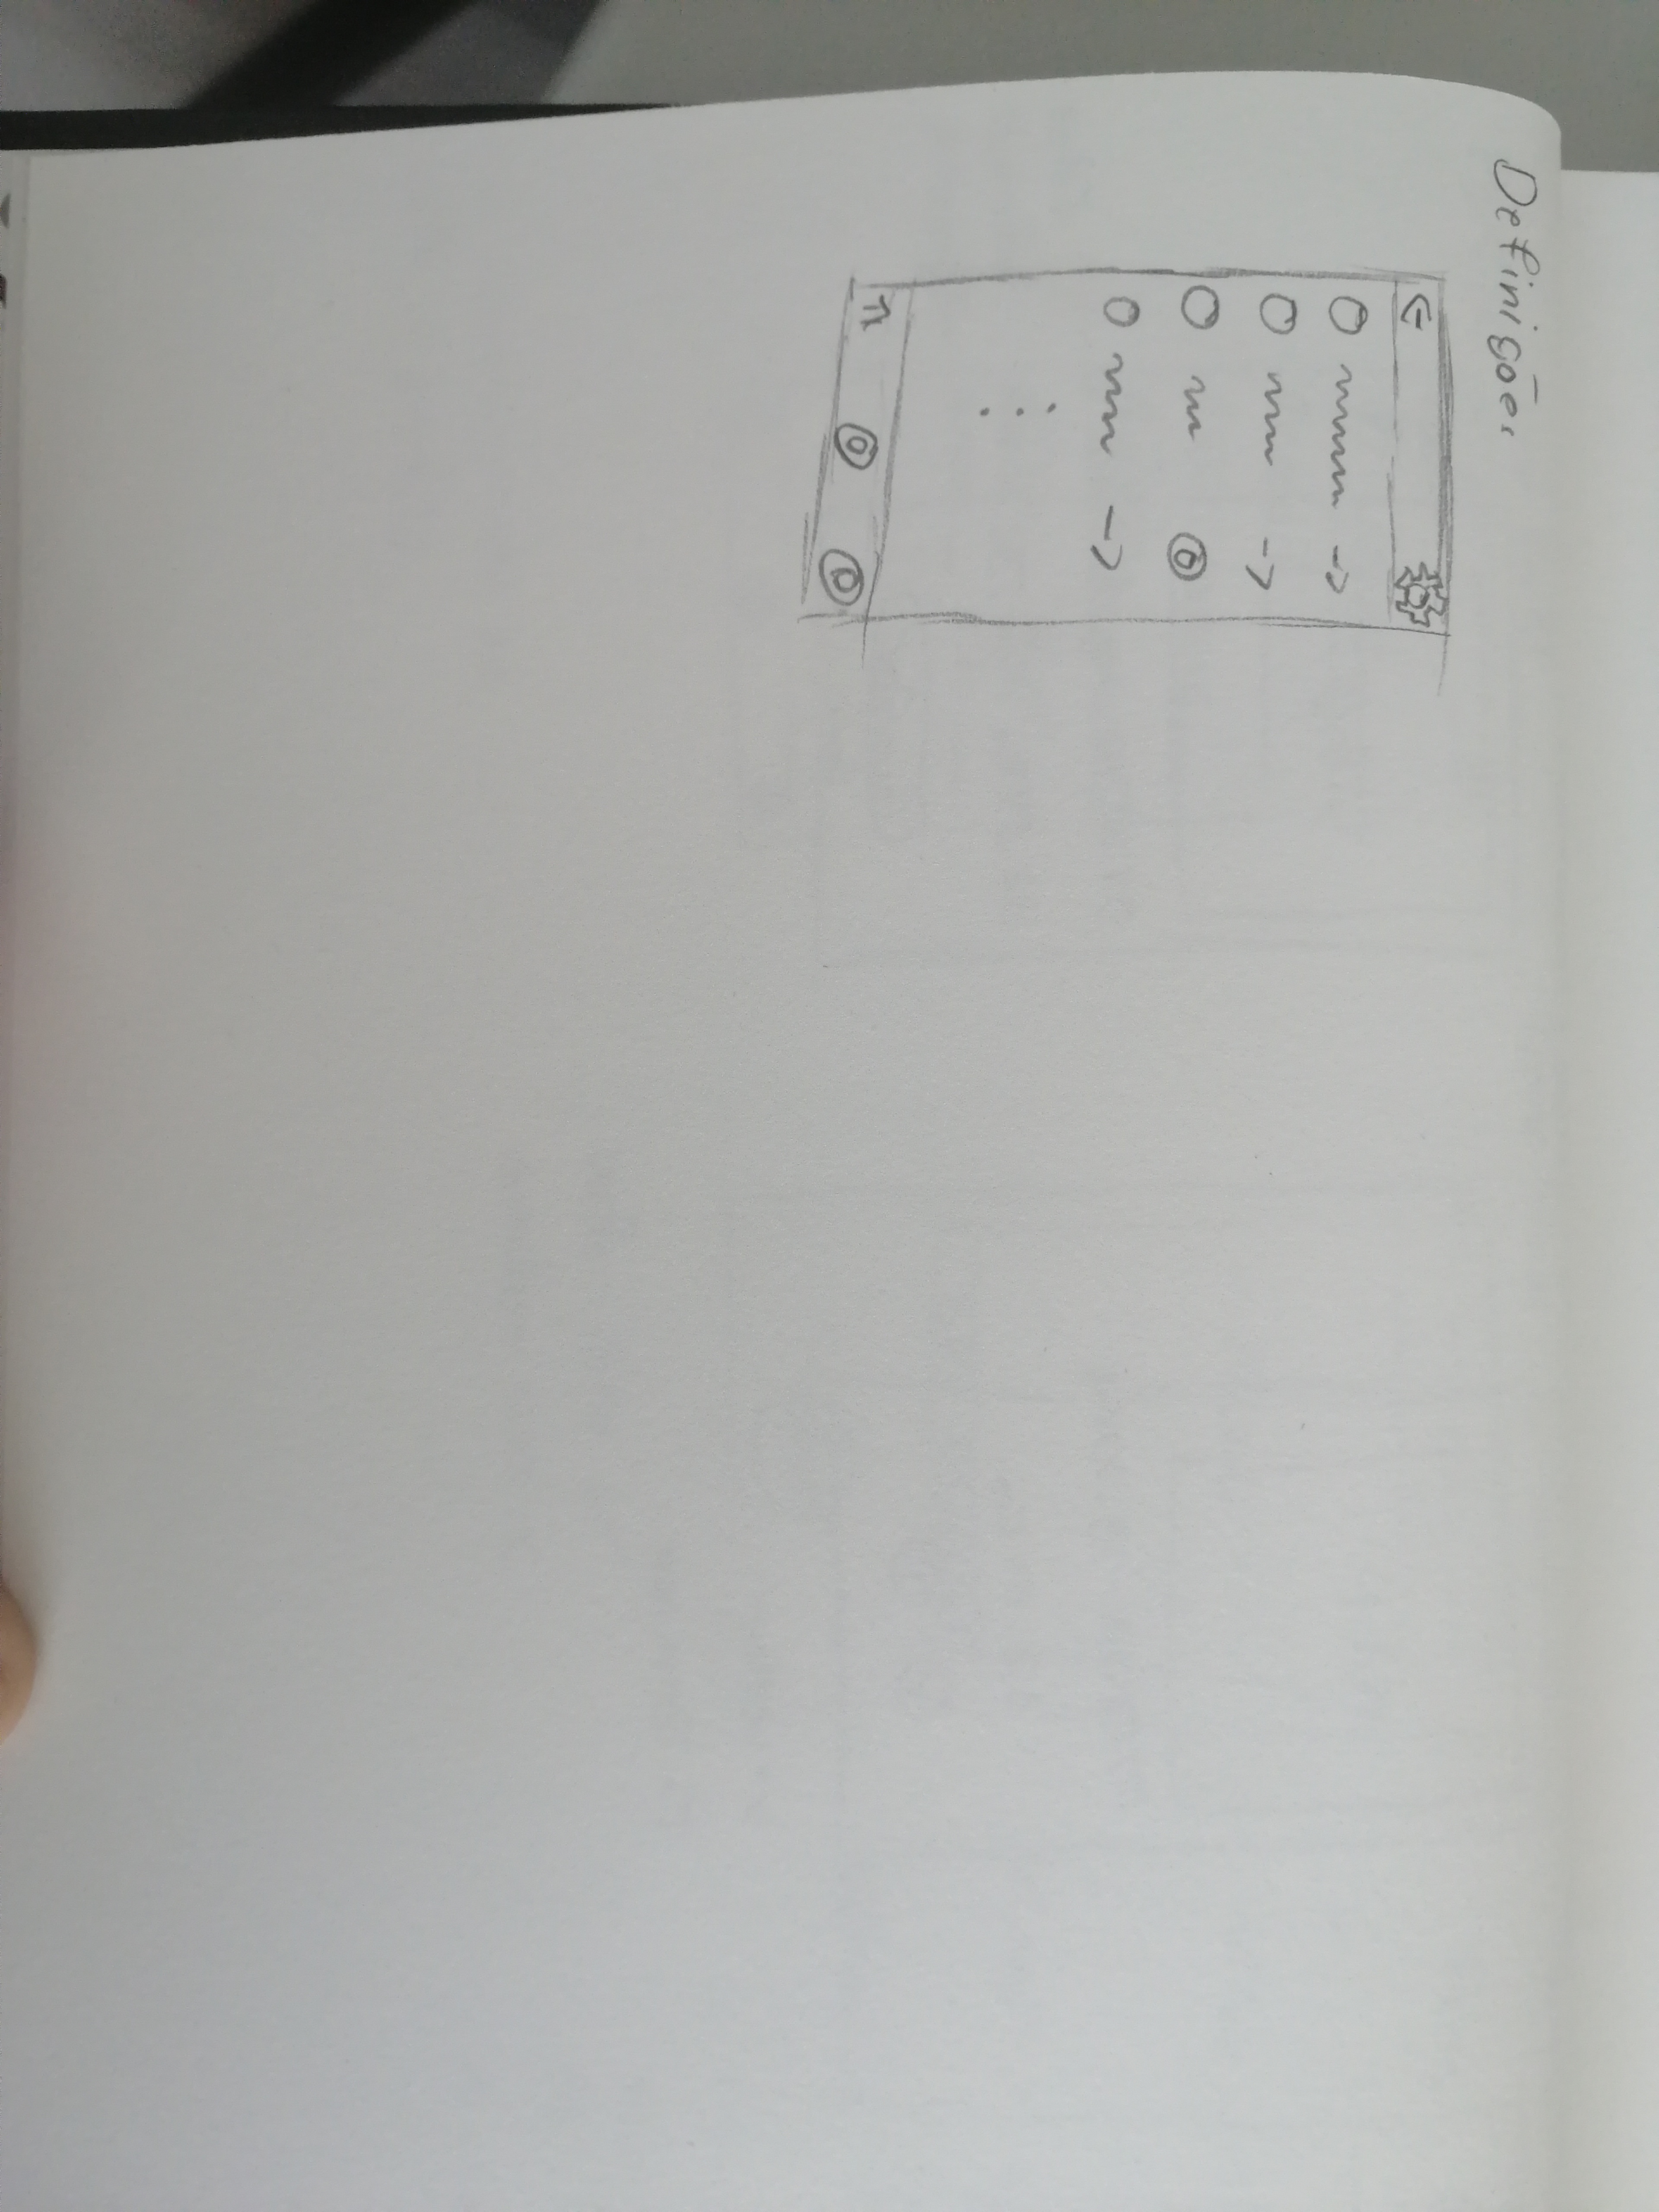 Definições